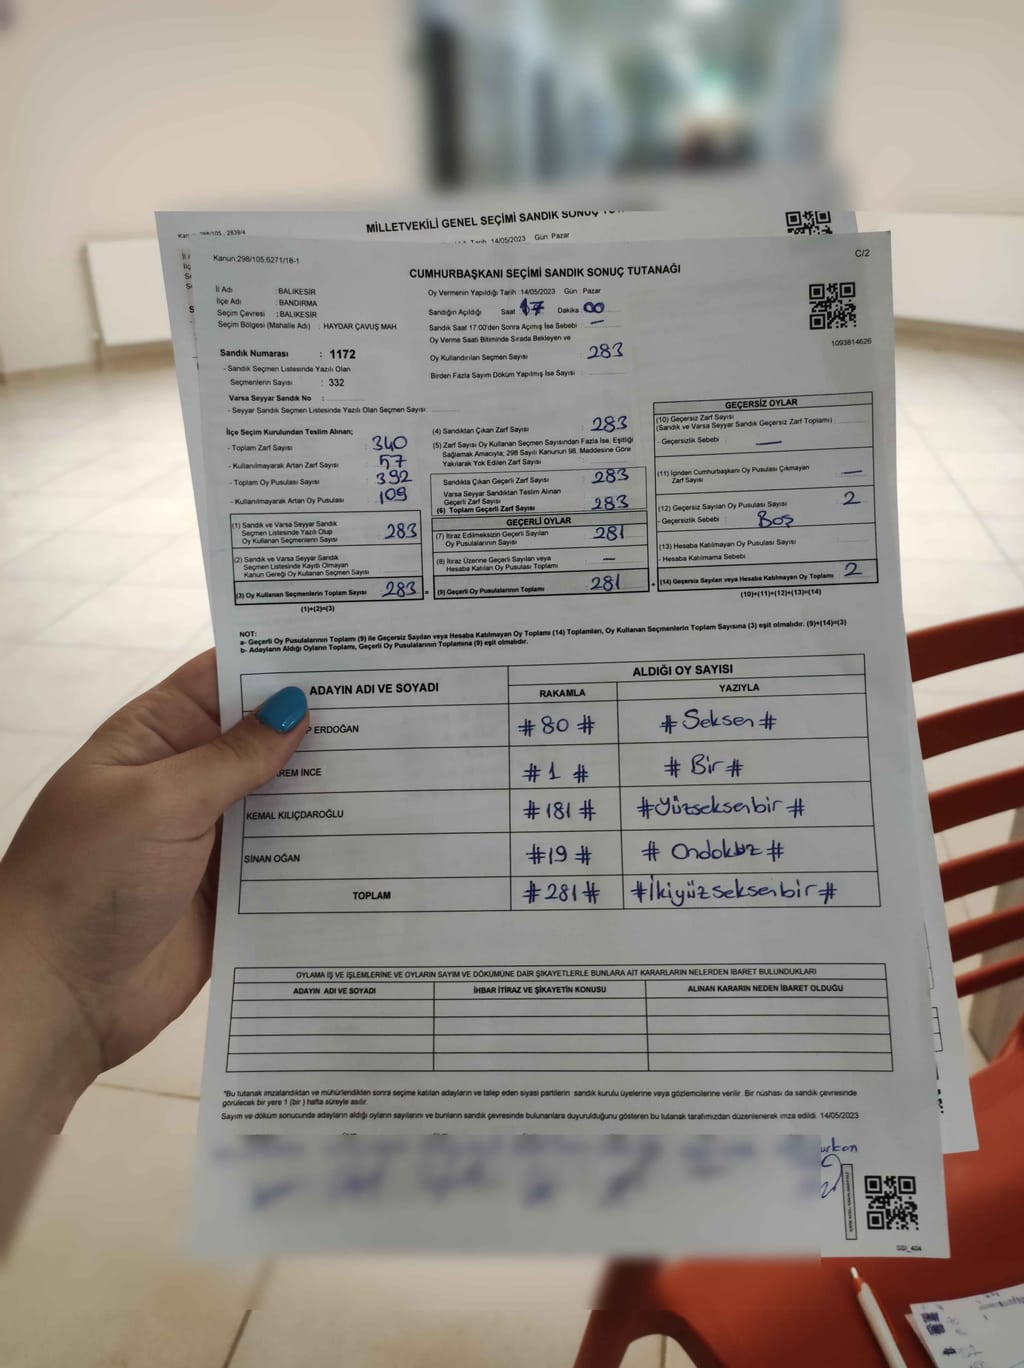 MİLLETVEKİLİ GENEL SEÇİMİ SANDIK SONUÇ
Tarih :14/05/2023 Gün: Pazar
Kanun:298/105;6271/18-1
C/2
CUMHURBAŞKANI SEÇİMİ SANDIK SONUÇ TUTANAĞI
İl Adı : BALIKESİR
İlçe Adı : BANDIRMA
Seçim Çevresi : BALIKESİR
Seçim Bölgesi (Mahalle Adı) : HAYDAR ÇAVUŞ MAH
Oy Vermenin Yapıldığı Tarih :14/05/2023 Gün : Pazar
Sandığın Açıldığı Saat 17 Dakika 00
Sandık Saat 17.00'den Sonra Açımış İse Sebebi —
Oy Verme Saati Bitiminde Sırada Bekleyen ve
Oy Kullandırılan Seçmen Sayısı 283
Birden Fazla Sayım Döküm Yapılmış İse Sayısı
1093814626
Sandık Numarası : 1172
- Sandık Seçmen Listesinde Yazılı Olan
Seçmenlerin Sayısı : 332
Varsa Seyyar Sandık No :
- Seyyar Sandık Seçmen Listesinde Yazılı Olan Seçmen Sayısı
İlçe Seçim Kurulundan Teslim Alınan;
- Toplam Zarf Sayısı 340
- Kullanılmayarak Artan Zarf Sayısı 57
- Toplam Oy Pusulası Sayısı 392
- Kullanılmayarak Artan Oy Pusulası 109
(1) Sandık ve Varsa Seyyar Sandık
Seçmen Listesinde Yazılı Olup
Oy Kullanan Seçmenlerin Sayısı 283
(2) Sandık ve Varsa Seyyar Sandık
Seçmen Listesinde Kayıtlı Olmayan
Kanun Gereği Oy Kullanan Seçmen Sayısı
(3) Oy Kullanan Seçmenlerin Toplam Sayısı 283
(1)+(2)=(3)
(4) Sandıktan Çıkan Zarf Sayısı 283
(5) Zarf Sayısı Oy Kullanan Seçmen Sayısından Fazla İse, Eşitliği
Sağlamak Amacıyla, 298 Sayılı Kanunun 98. Maddesine Göre
Yakılarak Yok Edilen Zarf Sayısı
Sandıkta Çıkan Geçerli Zarf Sayısı 283
Varsa Seyyar Sandıktan Teslim Alınan
Geçerli Zarf Sayısı
(6) Toplam Geçerli Zarf Sayısı 283
GEÇERLİ OYLAR
(7) İtiraz Edilmeksizin Geçerli Sayılan
Oy Pusulalarının Sayısı 281
(8) İtiraz Üzerine Geçerli Sayılan veya
Hesaba Katılan Oy Pusulası Toplamı —
= (9) Geçerli Oy Pusulalarının Toplamı 281
GEÇERSİZ OYLAR
(10) Geçersiz Zarf Sayısı
(Sandık ve Varsa Seyyar Sandık Geçersiz Zarf Toplamı)
- Geçersizlik Sebebi —
(11) İçinden Cumhurbaşkanı Oy Pusulası Çıkmayan
Zarf Sayısı —
(12) Geçersiz Sayılan Oy Pusulası Sayısı 2
- Geçersizlik Sebebi Boş
(13) Hesaba Katılmayan Oy Pusulası Sayısı
- Hesaba Katılmama Sebebi
+ (14) Geçersiz Sayılan veya Hesaba Katılmayan Oy Toplamı 2
(10)+(11)+(12)+(13)=(14)
NOT:
a- Geçerli Oy Pusulalarının Toplamı (9) ile Geçersiz Sayılan veya Hesaba Katılmayan Oy Toplamı (14) Toplamları, Oy Kullanan Seçmenlerin Toplam Sayısına (3) eşit olmalıdır. (9)+(14)=(3)
b- Adayların Aldığı Oyların Toplamı, Geçerli Oy Pusulalarının Toplamına (9) eşit olmalıdır.
ADAYIN ADI VE SOYADI
ALDIĞI OY SAYISI
RAKAMLA YAZIYLA
P ERDOĞAN #80# #Seksen#
REM İNCE #1# #Bir#
KEMAL KILIÇDAROĞLU #181# #Yüzseksenbir#
SİNAN OĞAN #19# #Ondokuz#
TOPLAM #281# #İkiyüzseksenbir#
OYLAMA İŞ VE İŞLEMLERİNE VE OYLARIN SAYIM VE DÖKÜMÜNE DAİR ŞİKAYETLERLE BUNLARA AİT KARARLARIN NELERDEN İBARET BULUNDUKLARI
ADAYIN ADI VE SOYADI İHBAR İTİRAZ VE ŞİKAYETİN KONUSU ALINAN KARARIN NEDEN İBARET OLDUĞU
*Bu tutanak imzalandıktan ve mühürlendikten sonra seçime katılan adayların ve talep eden siyasi partilerin sandık kurulu üyelerine veya gözlemcilerine verilir. Bir nüshası da sandık çevresinde
görülecek bir yere 1 (bir) hafta süreyle asılır.
Sayım ve döküm sonucunda adayların aldığı oyların sayılarını ve bunların sandık çevresinde bulunanlara duyurulduğunu gösteren bu tutanak tarafımızdan düzenlenerek imza edildi. 14/05/2023
urkan
SSİ_404